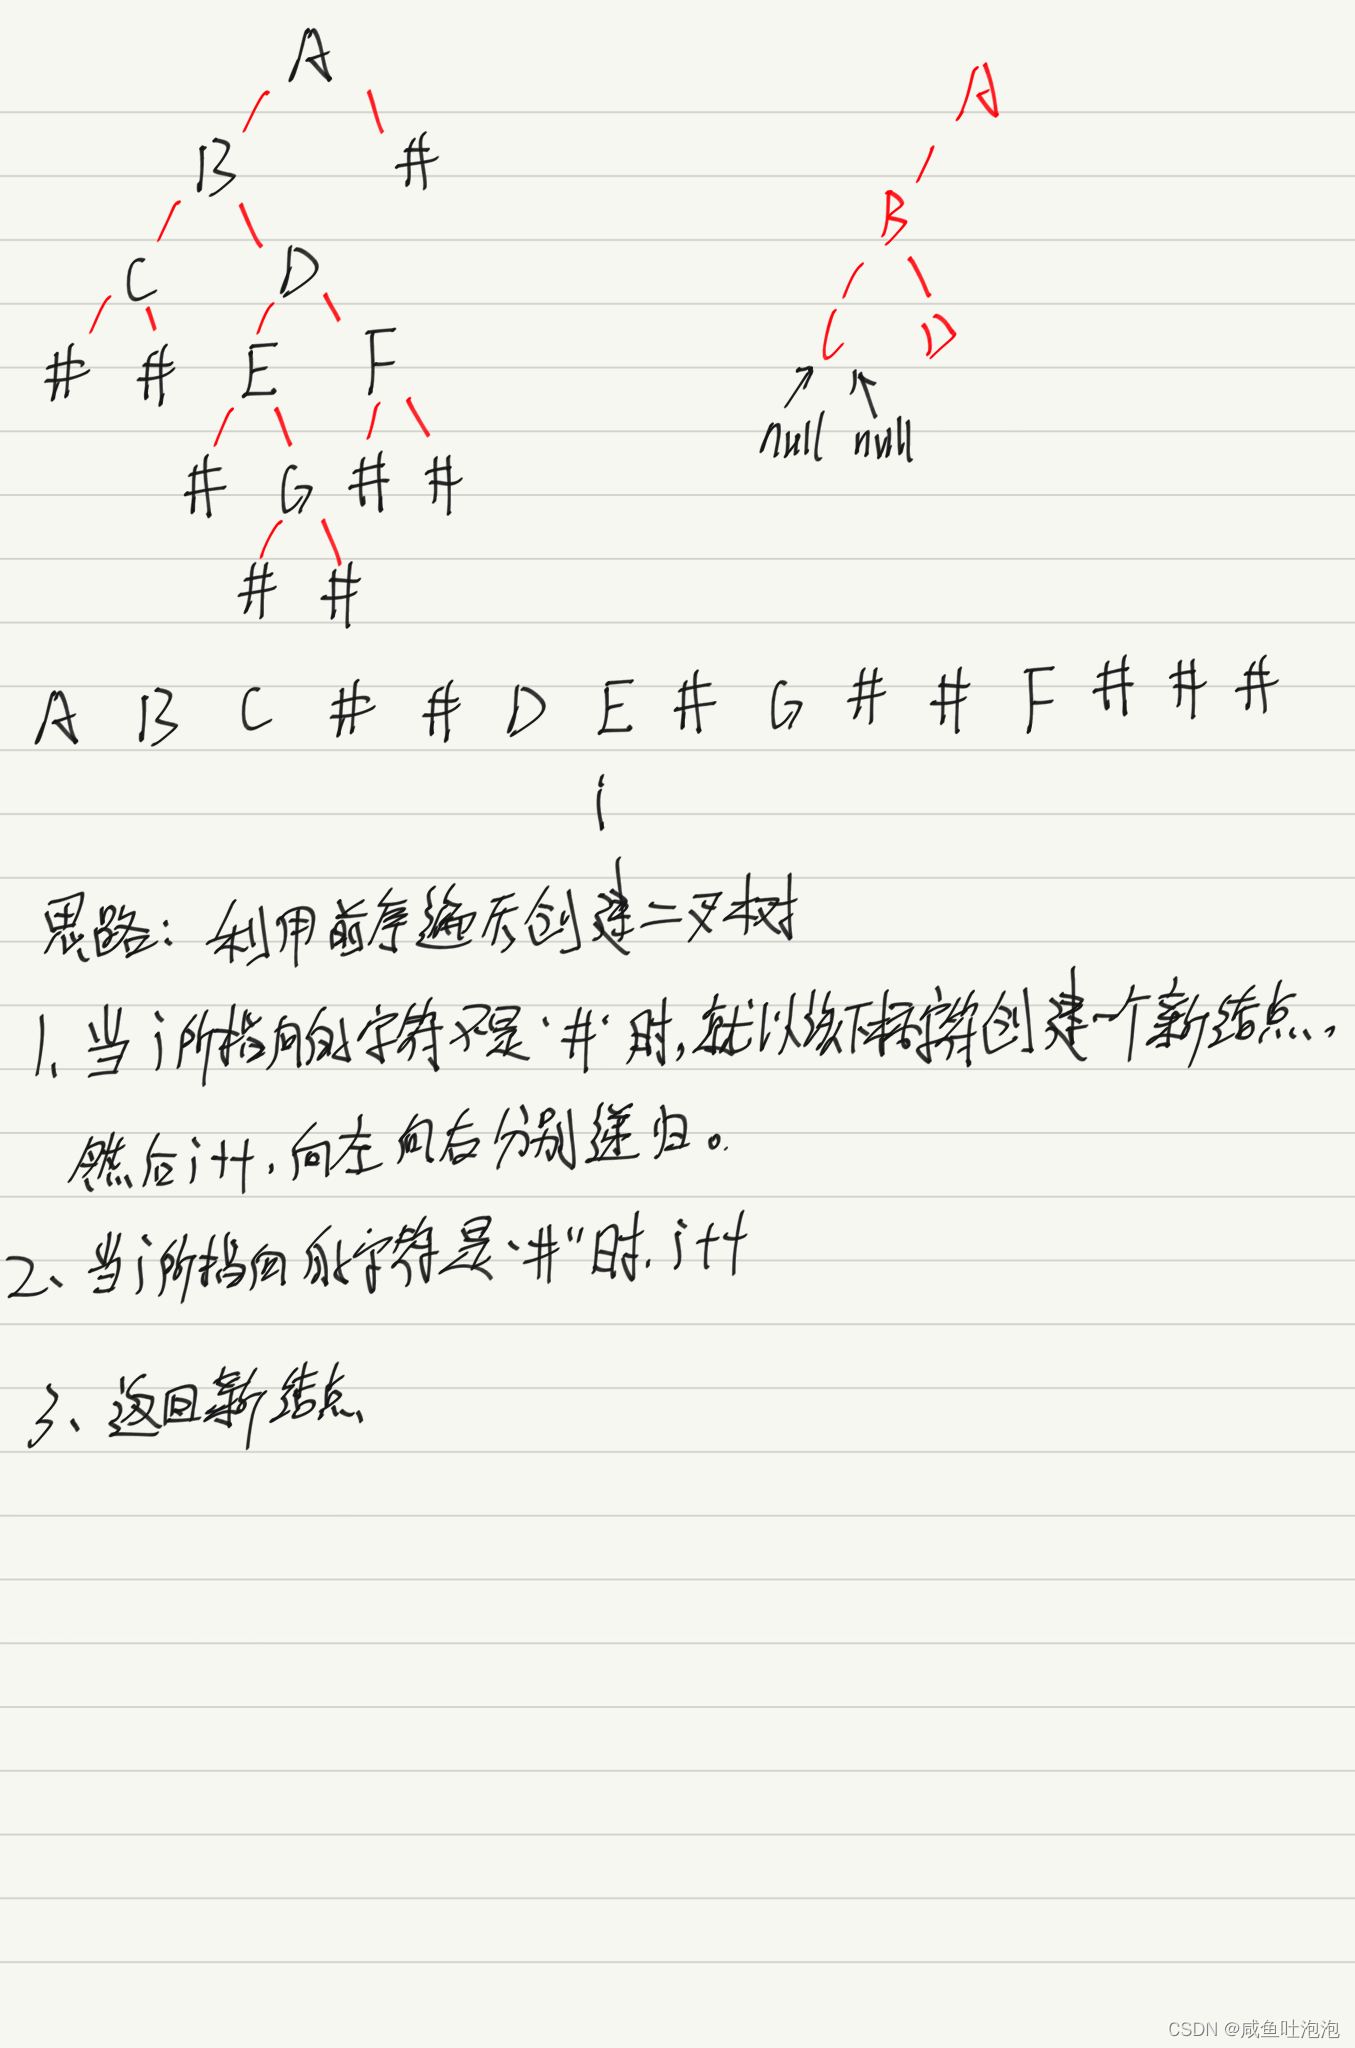 A
A
B #
B
C D
C D
# # E F
null null
# G # #
# #
A B C # # D E # G # # F # # #
i
思路：利用前序遍历创建二叉树
1、当i所指向的字符不是'#'时，就以该下标字符创建一个新结点，
然后i++，向左向右分别递归。
2、当i所指向的字符是'#"时，i++
3、返回新结点
CSDN @咸鱼吐泡泡